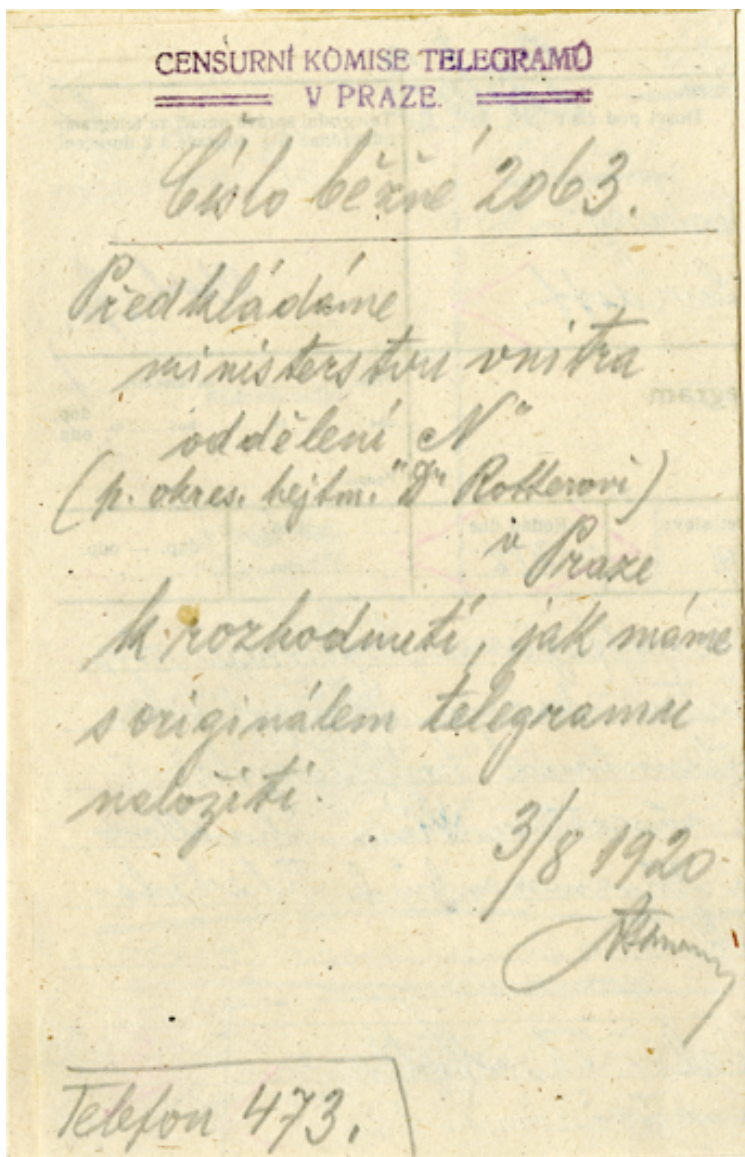 CENSURNÍ KOMISE TELEGRAMŮ
V PRAZE.
Číslo běžné 2063.
Předkládáme
ministerstvu vnitra
oddělení „N"
(p. okres. hejtm. Dr Rotterovi)
v Praze
k rozhodnutí, jak máme
s originálem telegramu
naložiti.
3/8 1920
Telefon 473.